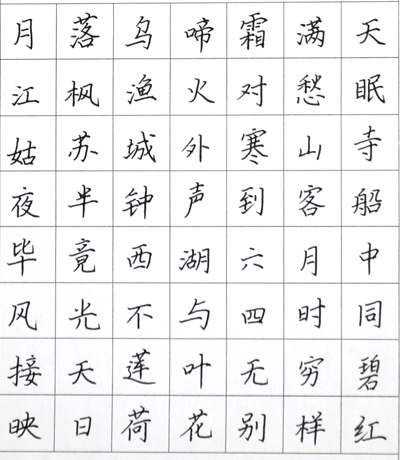 月落乌啼霜满天
江枫渔火对愁眠
姑苏城外寒山寺
夜半钟声到客船
毕竟西湖六月中
风光不与四时同
接天莲叶无穷碧
映日荷花别样红